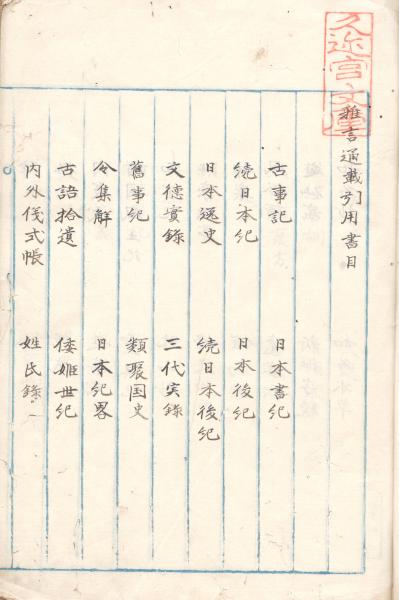 久迩宮文庫
雅言通載引用書目
古事記 日本書紀
続日本紀 日本後紀
日本逸史 続日本後紀
文徳實錄 三代実錄
舊事紀 類聚国史
令集解 日本紀畧
古語拾遺 倭姬世紀
内外儀式帳 姓氏錄